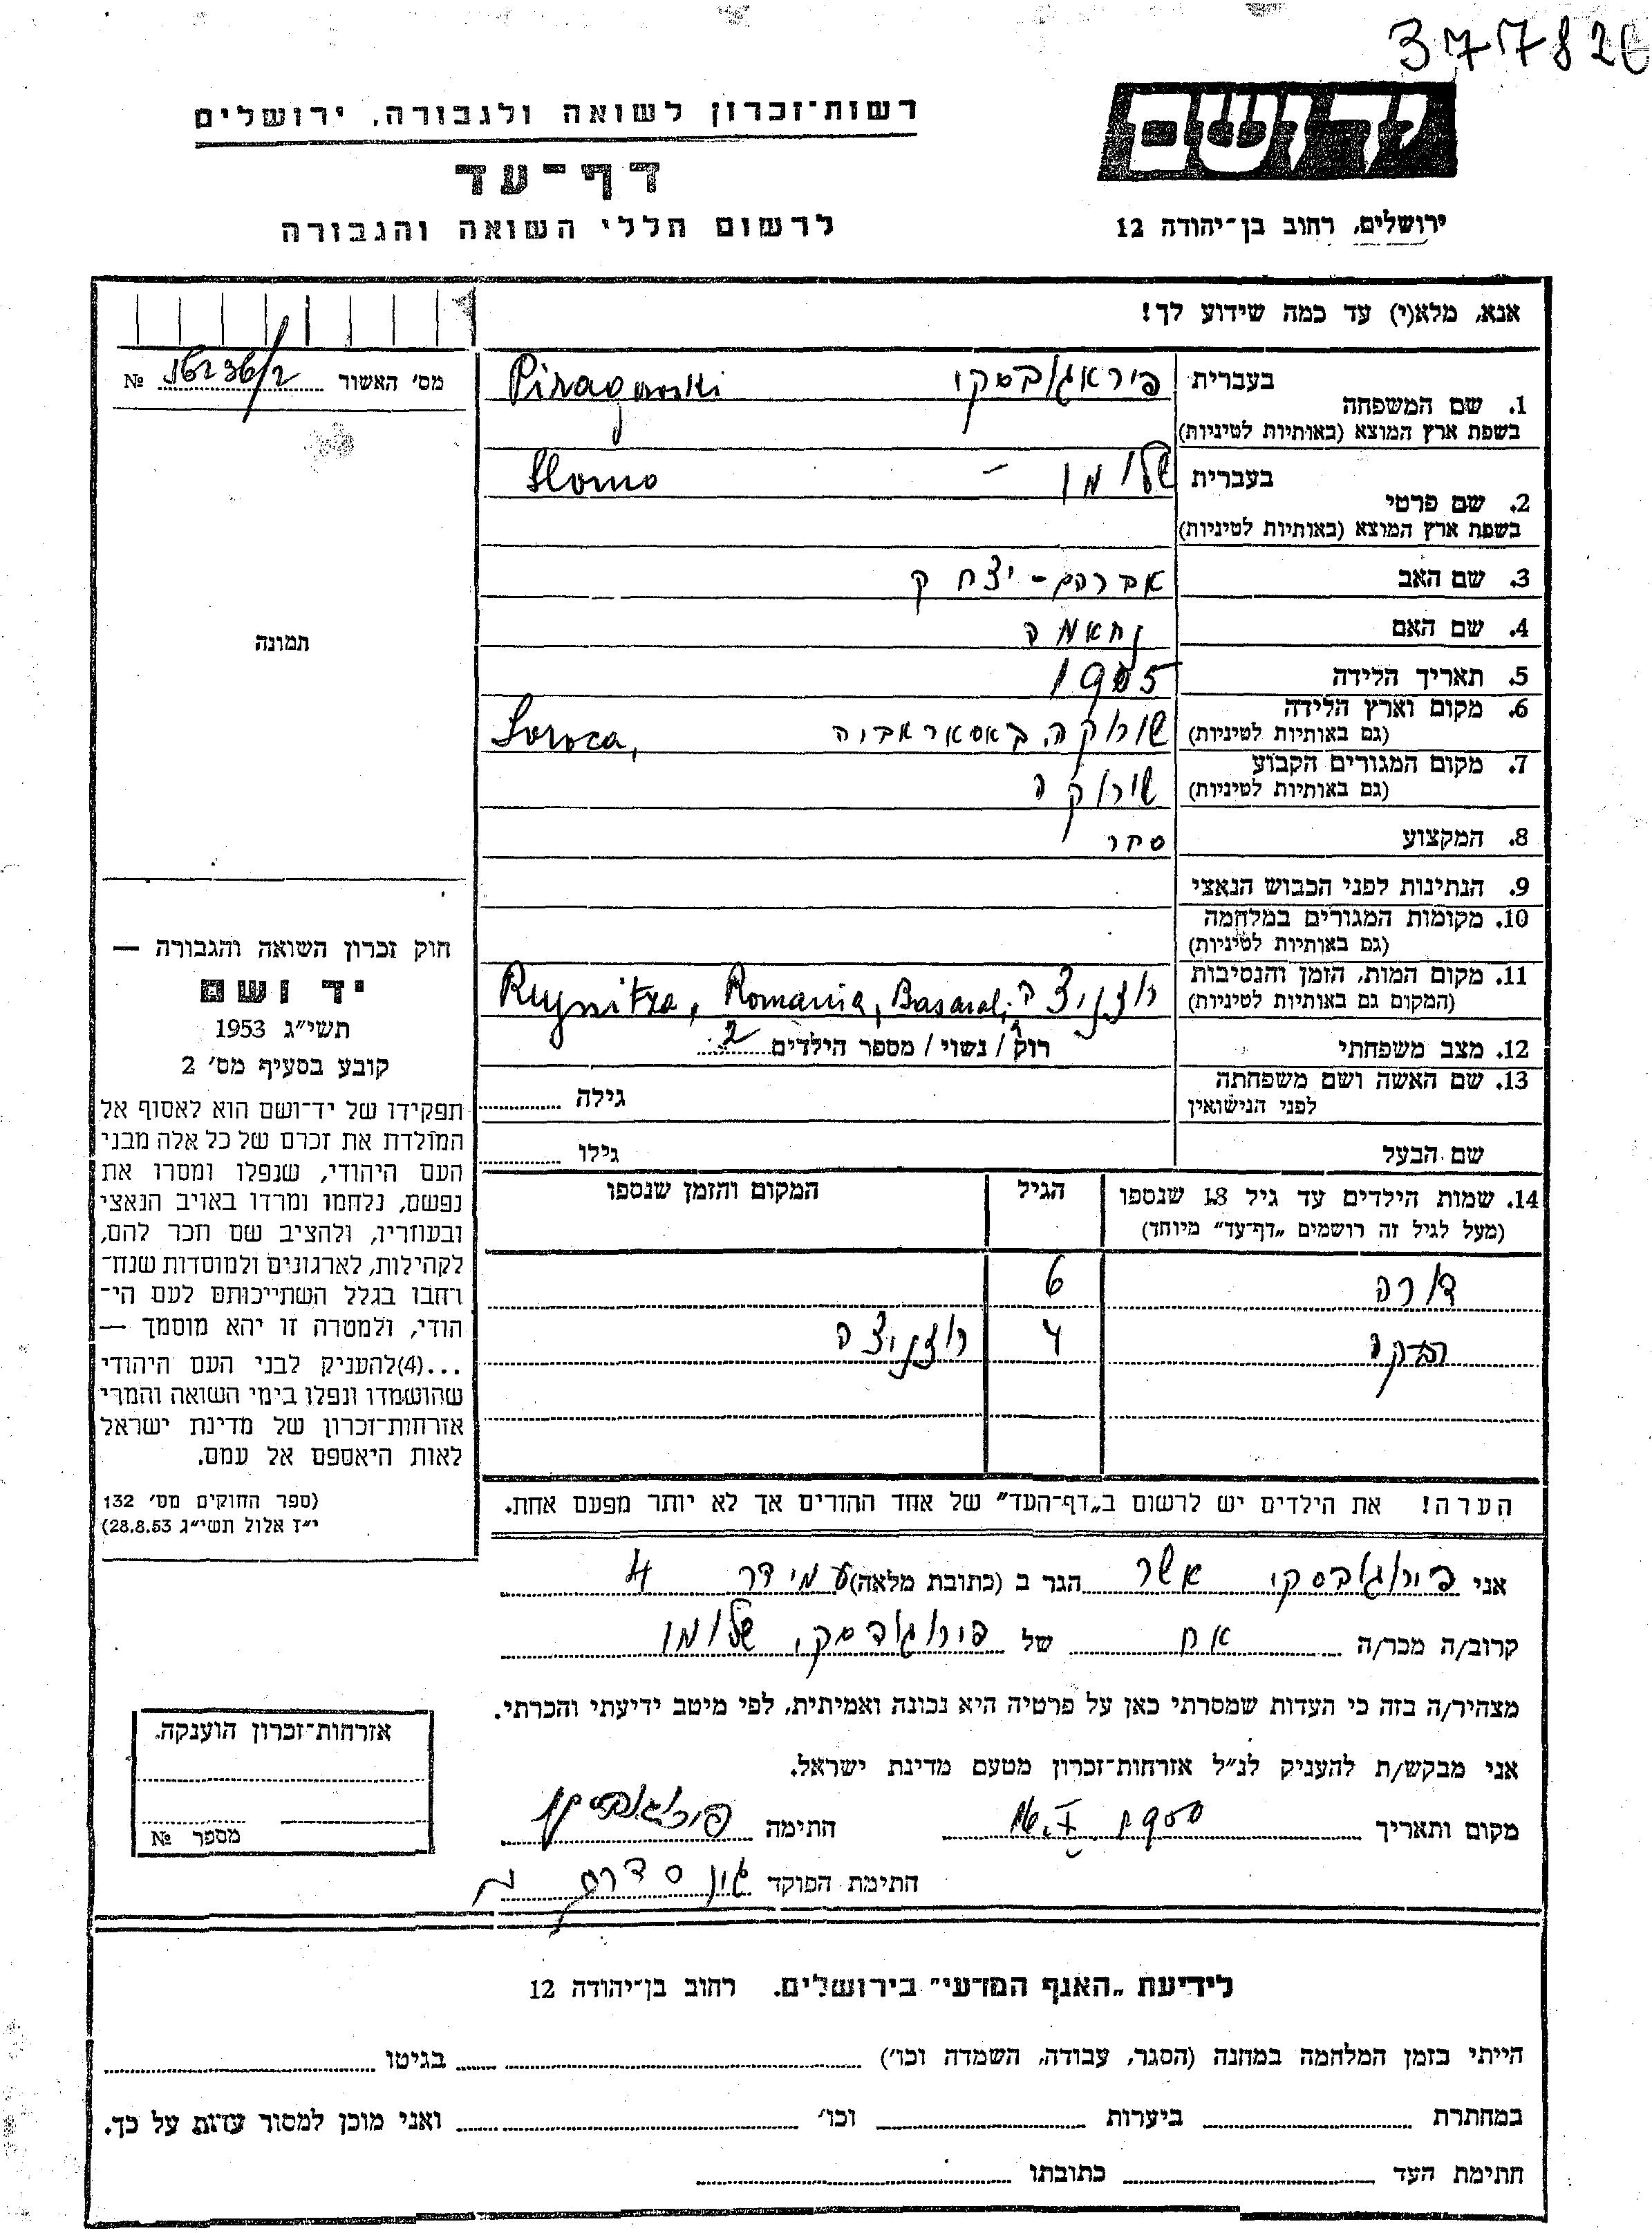 377826
יד ושם
רשות־זכרון לשואה ולגבורה, ירושלים
דף־עד
לרשום חללי השואה והגבורה
ירושלים, רחוב בן־יהודה 12
אנא, מלא(י) עד כמה שידוע לך!
מס׳ האשור № 16236/2
1. שם המשפחה בעברית פיראגובסקי Piragowski
בשפת ארץ המוצא (באותיות לטיניות)
2. שם פרטי בעברית שלומו – Slomo
בשפת ארץ המוצא (באותיות לטיניות)
3. שם האב אברהם - יצחק
4. שם האם נחאמה
5. תאריך הלידה 1905
6. מקום וארץ הלידה שורוקה, באסאראביה Soroca,
(גם באותיות לטיניות)
7. מקום המגורים הקבוע שורוקה
(גם באותיות לטיניות)
8. המקצוע סחר
9. הנתינות לפני הכבוש הנאצי
10. מקומות המגורים במלחמה
(גם באותיות לטיניות)
11. מקום המות, הזמן והנסיבות Romania, Basarab,
(המקום גם באותיות לטיניות)
12. מצב משפחתי רוק / נשוי / מספר הילדים 2
13. שם האשה ושם משפחתה גילה
לפני הנישואין
שם הבעל גילו
14. שמות הילדים עד גיל 18 שנספו הגיל המקום והזמן שנספו
(מעל לגיל זה רושמים „דף־עד״ מיוחד)
דורה 6
4
הערה! את הילדים יש לרשום ב„דף־העד״ של אחד ההורים אך לא יותר מפעם אחת.
תמונה
חוק זכרון השואה והגבורה —
יד ושם
תשי״ג 1953
קובע בסעיף מס׳ 2
תפקידו של יד־ושם הוא לאסוף אל
המולדת את זכרם של כל אלה מבני
העם היהודי, שנפלו ומסרו את
נפשם, נלחמו ומרדו באויב הנאצי
ובעוזריו, ולהציב שם וזכר להם,
לקהילות, לארגונים ולמוסדות שנח־
רחבו בגלל השתייכותם לעם הי־
הודי, ולמטרה זו יהא מוסמך —
...(4)להעניק לבני העם היהודי
שהושמדו ונפלו בימי השואה והמרי
אזרחות־זכרון של מדינת ישראל
לאות היאספם אל עמם.
(ספר החוקים מס׳ 132
י״ז אלול תשי״ג 28.8.53)
אני פירוגובסקי אשר הגר ב (כתובת מלאה) עמידר 4
קרוב/ה מכר/ה אח של פירוגובסקי שלומו
מצהיר/ה בזה כי העדות שמסרתי כאן על פרטיה היא נכונה ואמיתית, לפי מיטב ידיעתי והכרתי.
אני מבקש/ת להעניק לנ״ל אזרחות־זכרון מטעם מדינת ישראל.
מקום ותאריך חתימה
חתימת הפוקד
אזרחות־זכרון הוענקה.
מספר №
לידיעת „האגף המדעי״ בירושלים. רחוב בן־יהודה 12
הייתי בזמן המלחמה במחנה (הסגר, עבודה, השמדה וכו׳) בגיטו
במחתרת ביערות וכו׳ ואני מוכן למסור עדות על כך.
חתימת העד כתובתו